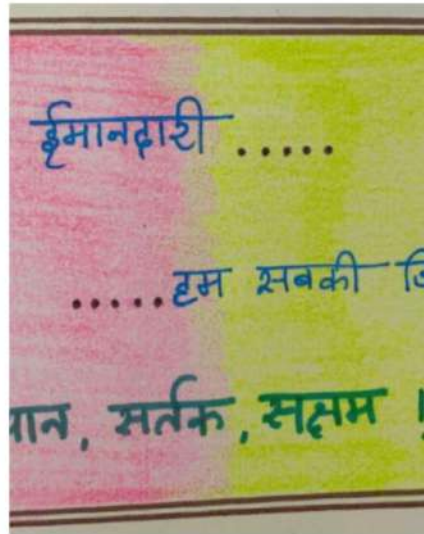 ईमानदारी .....
.....हम सबकी
, सर्तक, सक्षम